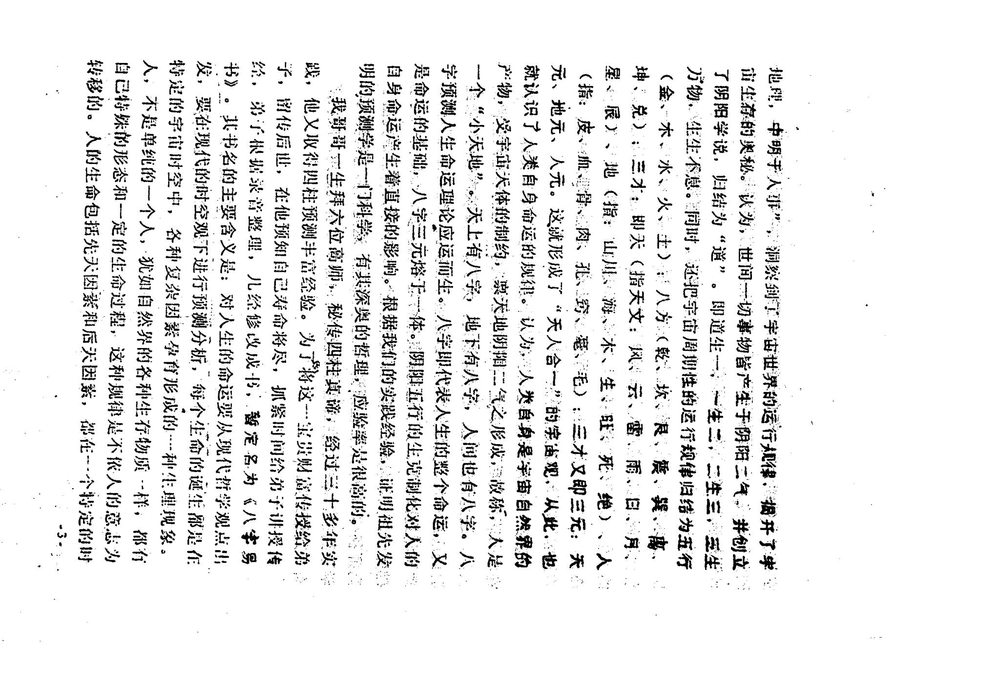 地理，中明于人事"，洞察到了宇宙世界的运行规律，揭开了宇
宙生存的奥秘。认为，世间一切事物皆产生于阴阳二气，并创立
了阴阳学说，归结为"道"。即道生一，一生二，二生三，三生
万物，生生不息。同时，还把宇宙周期性的运行规律归结为五行
（金、木、水、火、土）；八方（乾、坎、艮、震、巽、离、
坤、兑）；三才：即天（指天文：风、云、雷、雨、日、月、
星、辰）、地（指：山川、海、木、生、旺、死、绝）、人
（指：皮、血、骨、肉、孔、窍、毫、毛）；三才又即三元：天
元、地元、人元。这就形成了"天人合一"的宇宙观，从此，也
就认识了人类自身命运的规律。认为，人类自身是宇宙自然界的
产物，受宇宙天体的制约，禀天地阴阳二气之形成，故称：人是
一个"小天地"。天上有八字，地下有八字，人间也有八字。八
字预测人生命运理论应运而生。八字即代表人生的整个命运，又
是命运的基础，八字三元熔于一体。阴阳五行的生克制化对人的
自身命运产生着直接的影响。根据我们的实践经验，证明祖先发
明的预测学是一门科学，有其深奥的哲理，应验率是很高的。
我哥哥一生拜六位高师，秘传四柱真谛，经过三十多年实
践，他又取得四柱预测丰富经验。为了将这一宝贵财富传授给弟
子，留传后世，在他预知自己寿命将尽，抓紧时间给弟子讲授传
经，弟子根据录音整理，几经修改成书，暂定名为《八字易
书》。其书名的主要含义是：对人生的命运要从现代哲学观点出
发，要在现代的时空观下进行预测分析，每个生命的诞生都是在
特定的宇宙时空中，各种复杂因素孕育形成的一种生理现象。
人，不是单纯的一个人，犹如自然界的各种生存物质一样，都有
自己特殊的形态和一定的生命过程，这种规律是不依人的意志为
转移的。人的生命包括先天因素和后天因素，都在一个特定的时
·3·